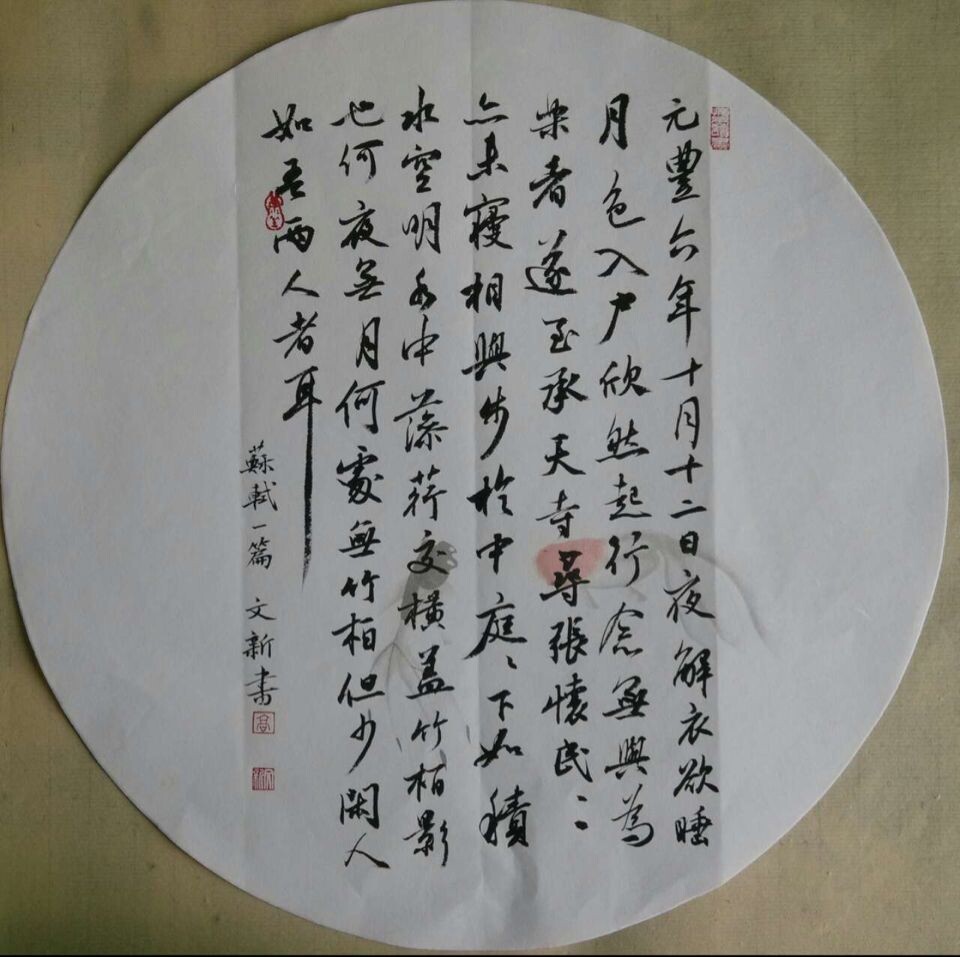 元豐六年十月十二日夜解衣欲睡
月色入户欣然起行念無與為
樂者遂至承天寺尋張懷民〻
亦未寝相與步於中庭〻下如積
水空明水中藻荇交横蓋竹柏影
也何夜無月何處無竹柏但少閑人
如吾兩人者耳
蘇軾一篇 文新書